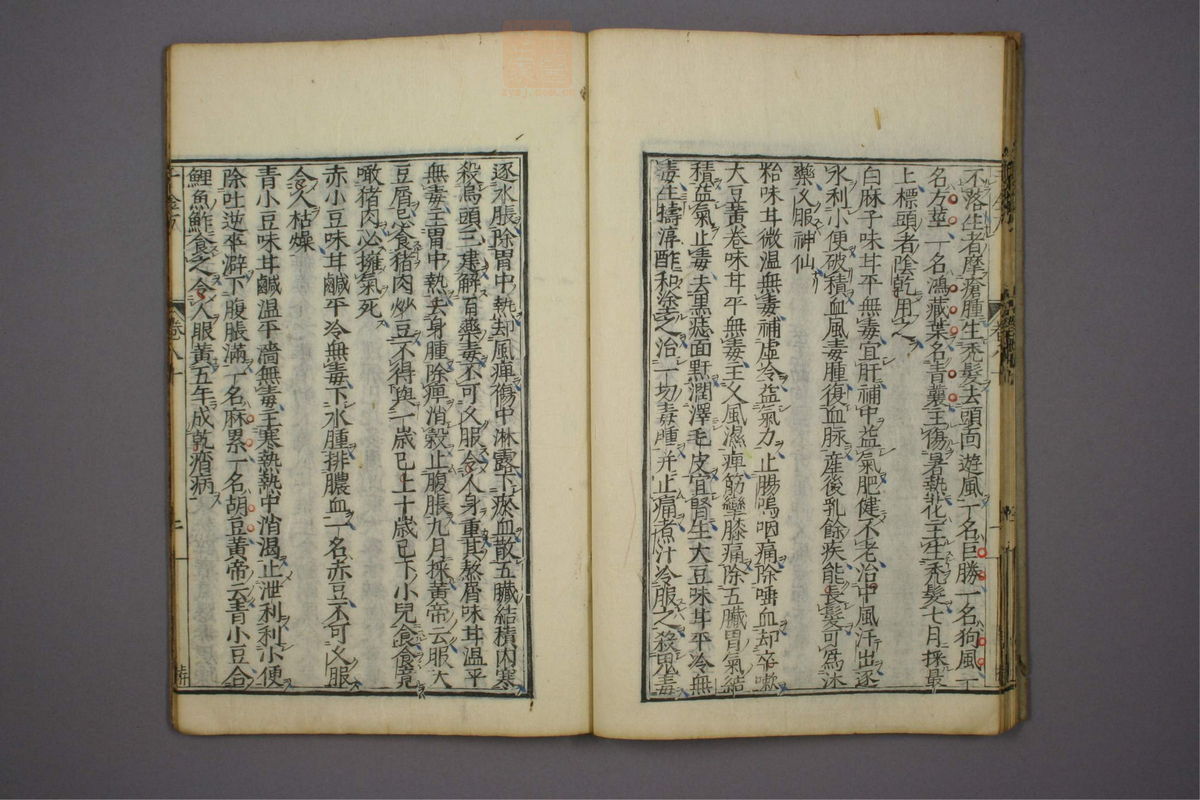 不落生者摩瘡腫生禿髮去頭面遊風一名巨勝一名狗風一
名方莖一名鴻藏葉名青蘘主傷暑熱花主生禿髮七月採最
上標頭者陰乾用之
白麻子味甘平無毒宜肝補中益氣肥健不老治中風汗出逐
水利小便破積血風毒腫復血脉產後乳餘疾能長髮可爲沐
藥久服神仙
粭味甘微溫無毒補虛冷益氣力止腸鳴咽痛除唾血却卒嗽
大豆黃卷味甘平無毒主久風濕痺筋攣膝痛除五臟胃氣結
積益氣止毒去黑痣面䵟潤澤毛皮宜腎生大豆味甘平冷無
毒生擣淳酢和塗之治一切毒腫并止痛煮汁冷服之殺鬼毒
逐水脹除胃中熱却風痺傷中淋露下瘀血散五臟結積內寒
殺烏頭三建解百藥毒不可久服令人身重其熬屑味甘溫平
無毒主胃中熱去身腫除痺消穀止腹脹九月採黃帝云服大
豆屑忌食猪肉炒豆不得與一歲已上十歲已下小兒食食竟
噉猪肉必擁氣死
赤小豆味甘鹹平冷無毒下水腫排膿血一名赤豆不可久服
令人枯燥
青小豆味甘鹹溫平濇無毒主寒熱熱中消渴止泄利利小便
除吐逆卒澼下腹脹滿一名麻累一名胡豆黃帝云青小豆合
鯉魚鮓食之令人服黃五年成乾痟病
卷八